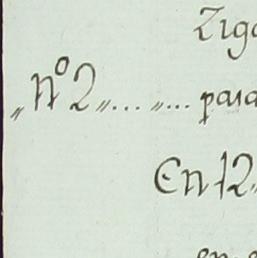 Ziga
„Nº 2„... „... para
En 12„